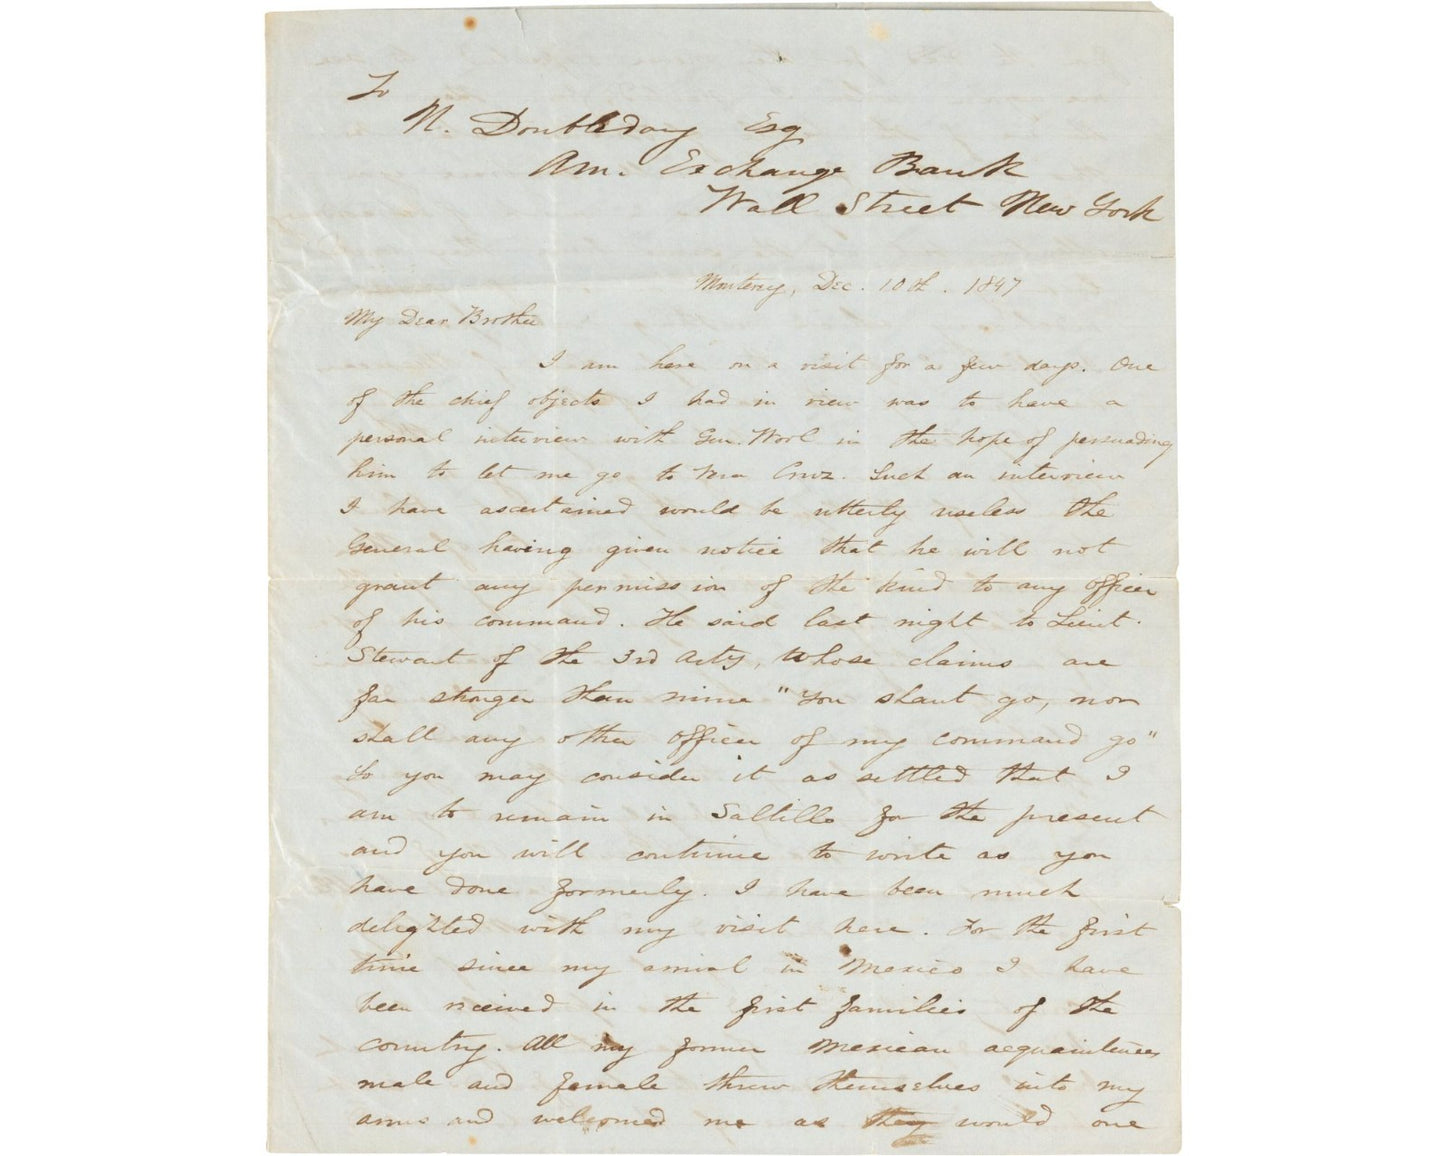 To
N. Doubleday Esq
Am. Exchange Bank
Wall Street New York
Monterey, Dec. 10th. 1847
My Dear Brother
I am here on a visit for a few days. One
of the chief objects I had in view was to have a
personal interview with Gen. Wool in the hope of persuading
him to let me go to Vera Cruz. Such an interview
I have ascertained would be utterly useless the
General having given notice that he will not
grant any permission of the kind to any officer
of his command. He said last night to Lieut.
Stewart of the 3rd Arty, whose claims are
far stronger than mine "You shant go, nor
shall any other officer of my command go"
So you may consider it as settled that I
am to remain in Saltillo for the present
and you will continue to write as you
have done formerly. I have been much
delighted with my visit here. For the first
time since my arrival in Mexico I have
been received in the first families of the
country. All my former Mexican acquaintences
male and female threw themselves into my
arms and welcomed me as they would one